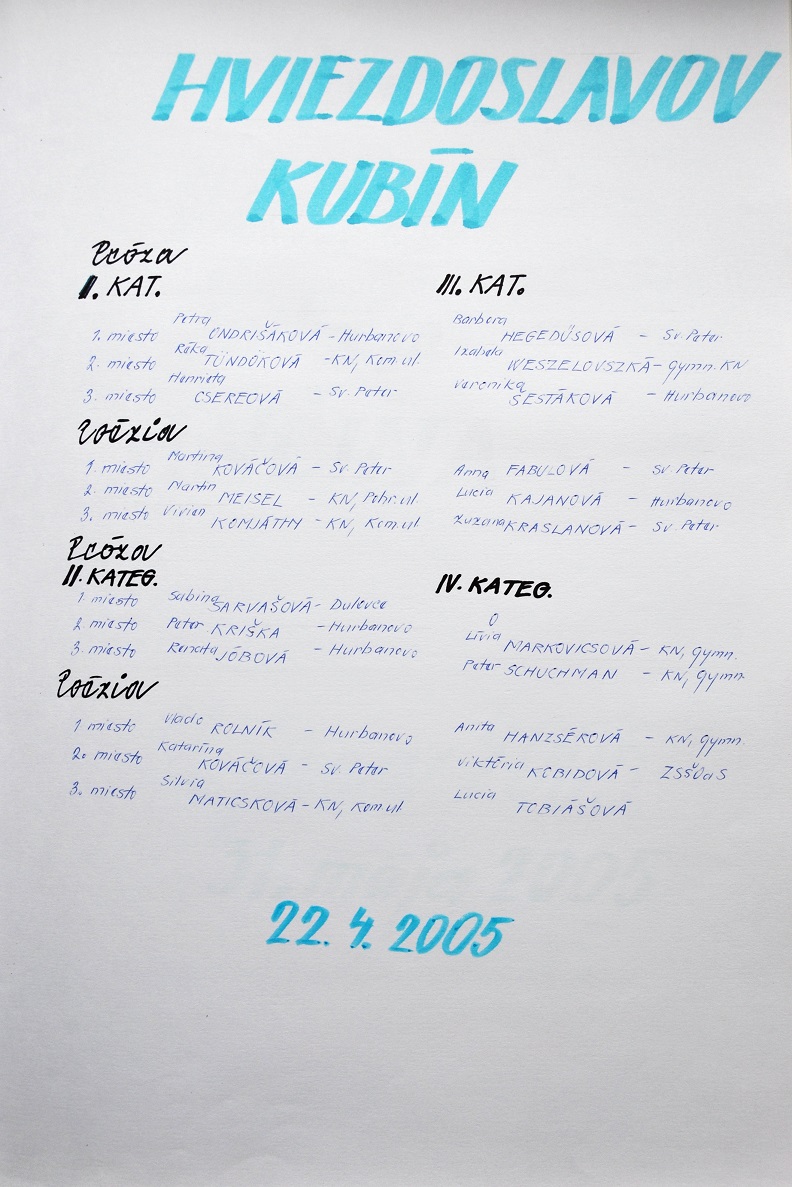 HVIEZDOSLAVOV
KUBÍN
Próza
II. KAT. III. KAT.
1. miesto Petra ONDRIŠÁKOVÁ - Hurbanovo Barbora HEGEDŰSOVÁ - Sv. Peter
2. miesto Réka TÜNDÖKOVÁ - KN, Kom. ul. Izabela WESZELOVSZKÁ - gymn. KN
3. miesto Henrieta CSEREOVÁ - Sv. Peter Veronika ŠESTÁKOVÁ - Hurbanovo
Poézia
1. miesto Martina KOVÁČOVÁ - Sv. Peter Anna FABULOVÁ - Sv. Peter
2. miesto Martin MEISEL - KN, Pohr. ul. Lucia KAJANOVÁ - Hurbanovo
3. miesto Vivien KOMJÁTHY - KN, Kom. ul Zuzana KRASLANOVÁ - Sv. Peter
Próza
II. KATEG. IV. KATEG.
1 miesto Sabina SARVAŠOVÁ - Dulovce O
2 miesto Peter KRIŠKA - Hurbanovo Lívia MARKOVICSOVÁ - KN, gymn.
3. miesto Renata JÓBOVÁ - Hurbanovo Peter SCHUCHMAN - KN, gymn.
Poézia
1. miesto Vlado ROLNÍK - Hurbanovo Anita HANZSÉROVÁ - KN, gymn.
2. miesto Katarína KOVÁČOVÁ - Sv. Peter Viktória KOBIDOVÁ - ZSŠOaS
3. miesto Silvia MATICSKOVÁ - KN, Kom. ul Lucia TOBIÁŠOVÁ
22. 4. 2005